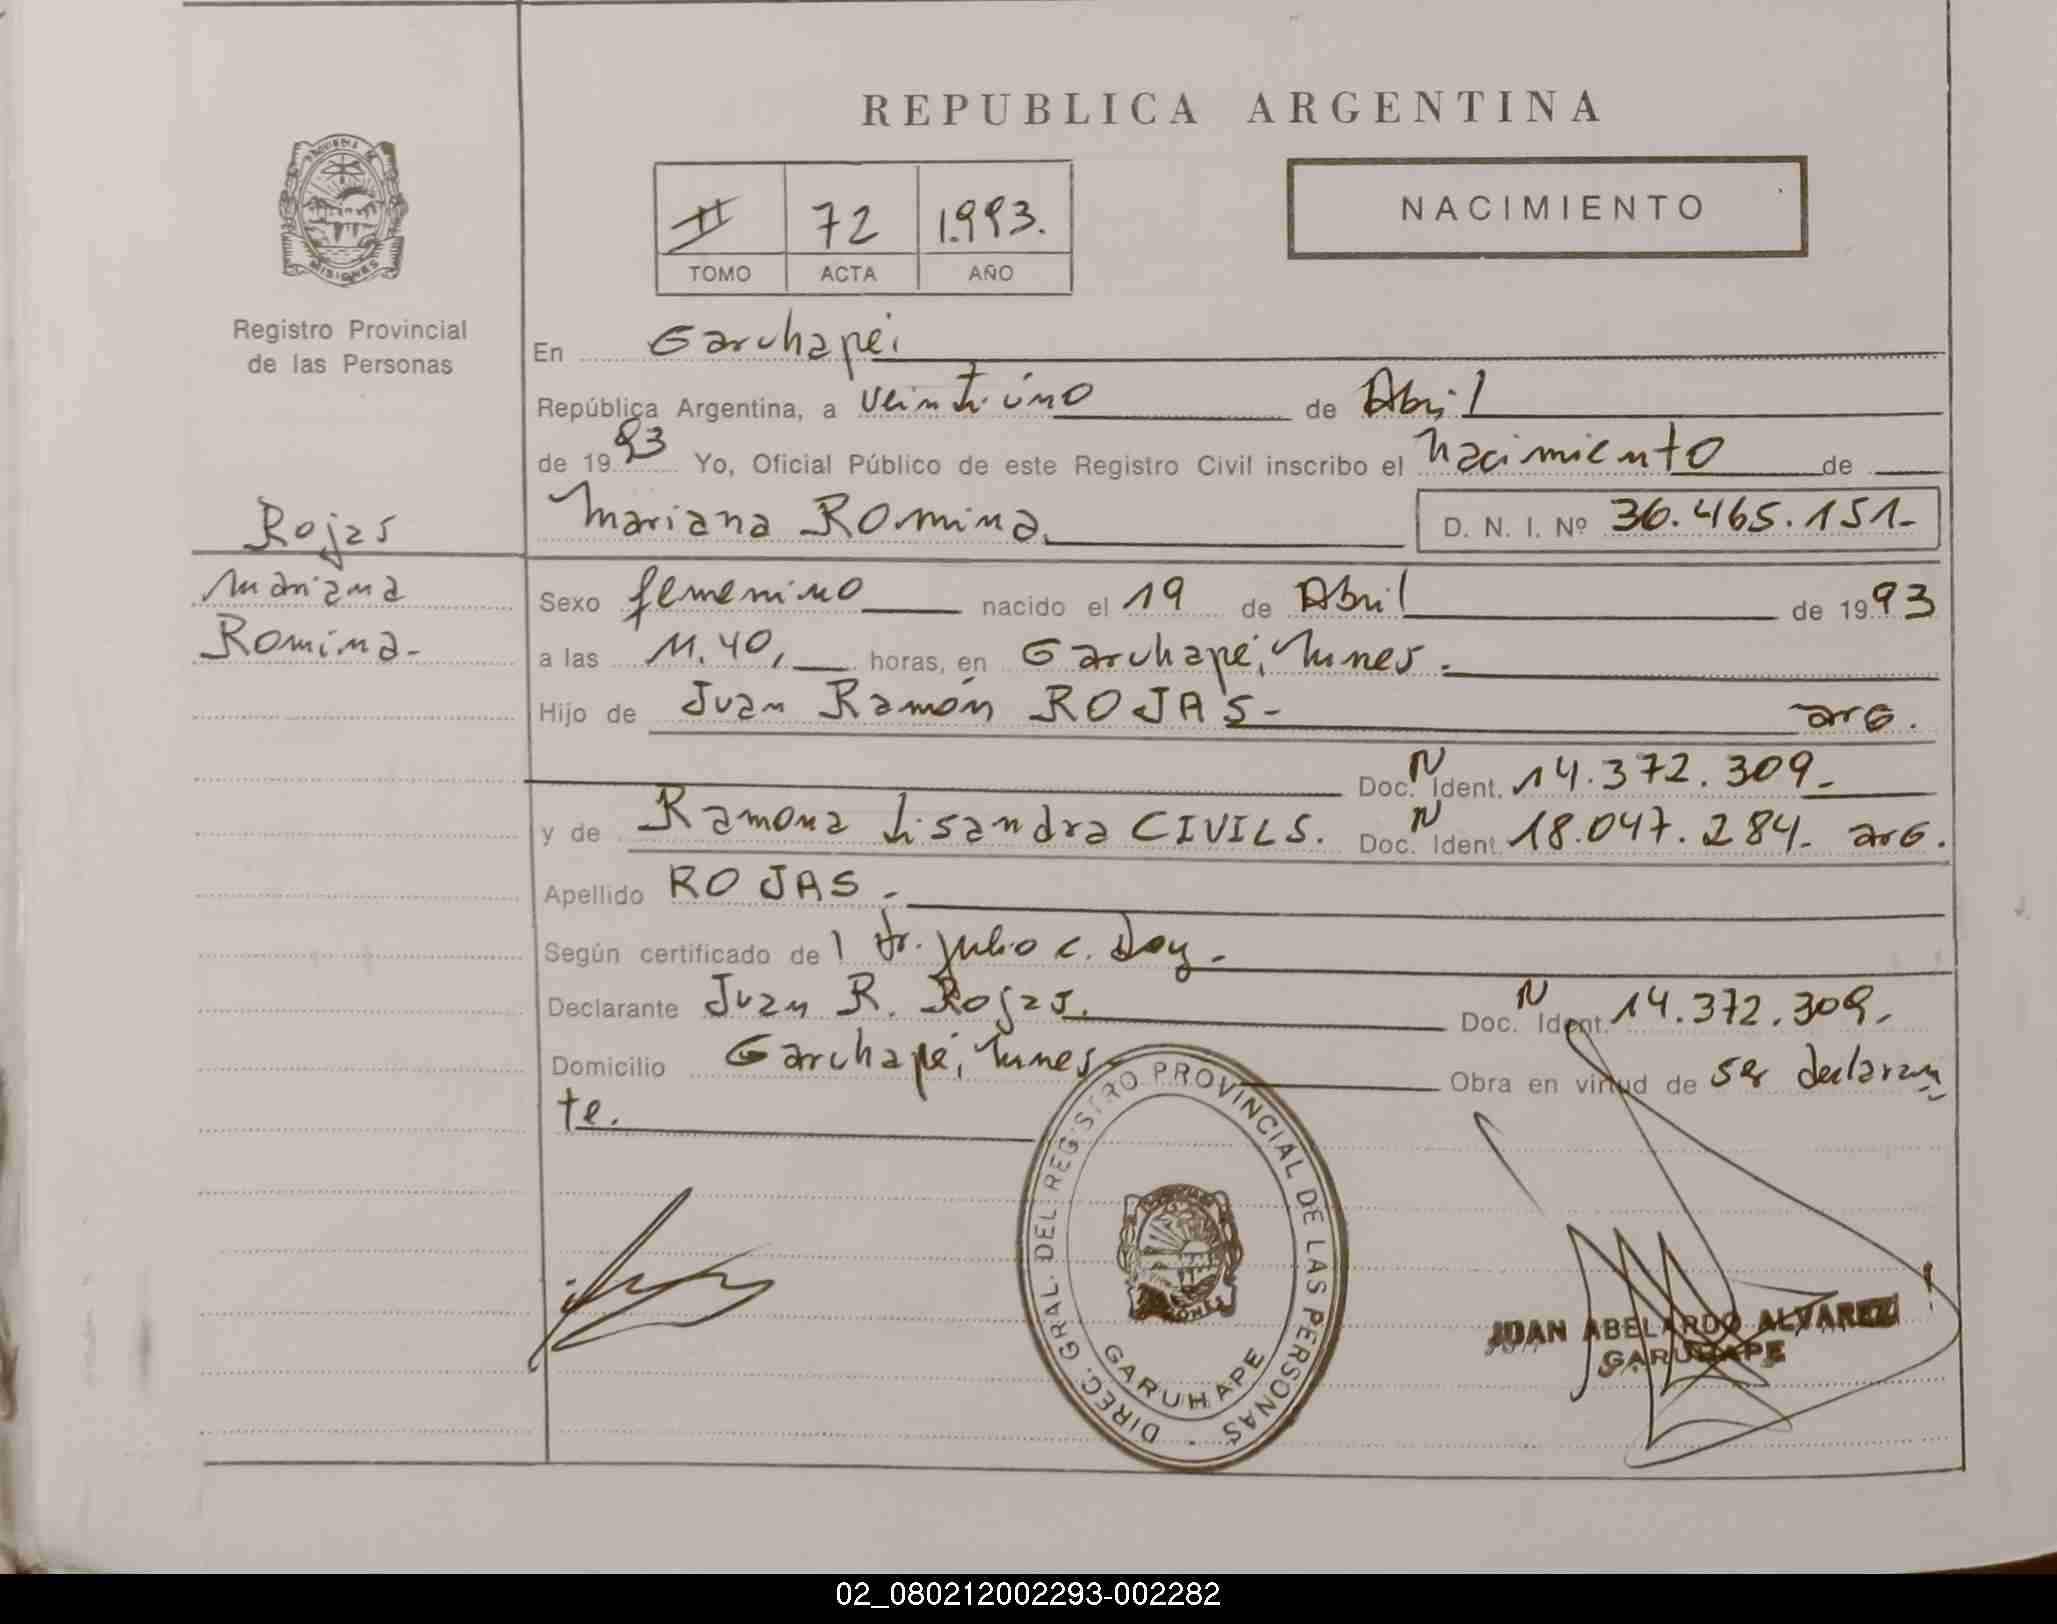 REPUBLICA ARGENTINA
PROVINCIA DE
MISIONES
II 72 1.993.
TOMO ACTA AÑO
NACIMIENTO
Registro Provincial
de las Personas
Rojas
Mariana
Romina-
En Garuhapé,
República Argentina, a veintiúno de Abril
de 1993 Yo, Oficial Público de este Registro Civil inscribo el nacimiento de
Mariana ROmina. D. N. I. Nº 36.465.151-
Sexo femenino nacido el 19 de Abril de 1993
a las 11.40, horas, en Garuhapé, Mnes.
Hijo de Juan Ramón ROJAS- arG.
Doc. N Ident. 14.372.309-
y de Ramona Lisandra CIVILS. Doc. N Ident. 18.047.284- arG.
Apellido ROJAS.
Según certificado de l Dr. Julio C.
Declarante Juan R. Rojas. Doc. N Ident. 14.372.309.
Domicilio Garuhapé, Mnes Obra en virtud de ser declaran
te.
DIREC. GRAL. DEL REGISTRO PROVINCIAL DE LAS PERSONAS
GARUHAPE
JUAN ABELARDO ALVAREZ
GARUHAPE
02_080212002293-002282